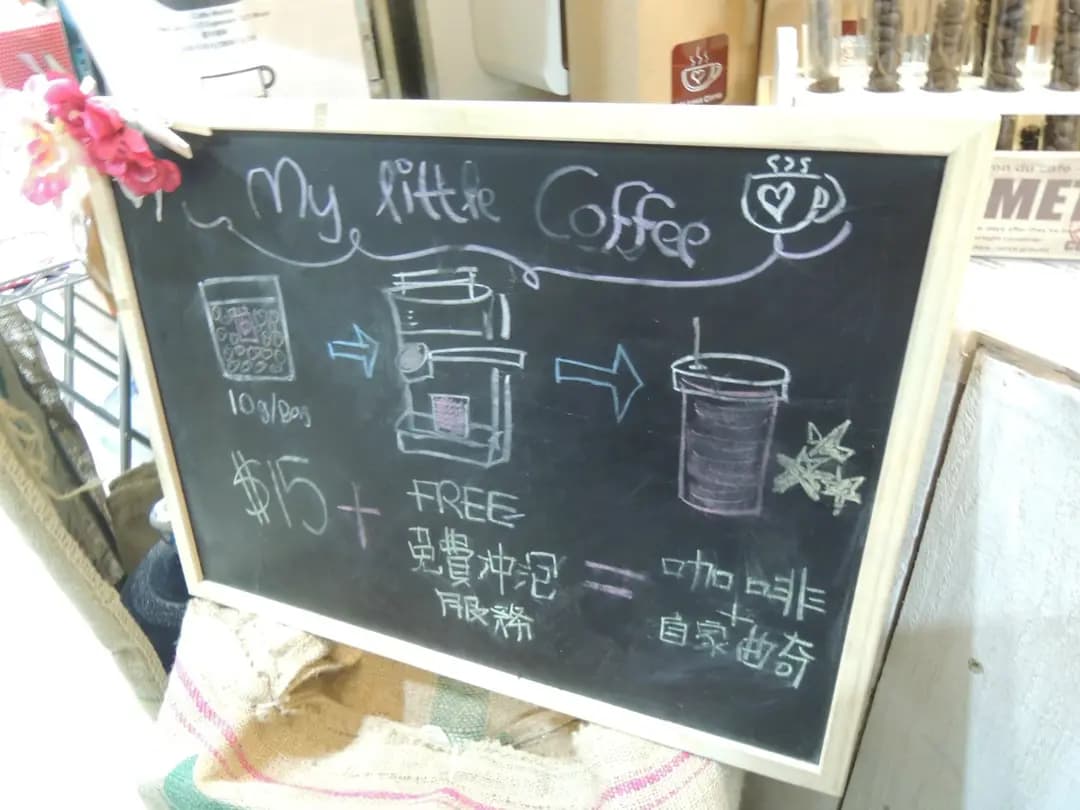 My little Coffee
10g/Bag
$15 + FREE
免費冲泡
服務
=
咖啡
+
自家曲奇
MET